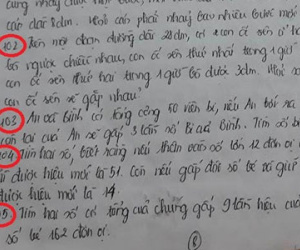 cùng nhảy chục
các dài 8dm. Hỏi cóc phải nhảy bao nhiêu bước mới
102 Trên một đoạn đường dài 28dm, có 2 con ốc sên ở hai
bò ngược chiều nhau, con ốc sên thứ nhất trong 1 giờ
con ốc sên thứ hai trong 1 giờ bò được 3dm. Hỏi
con ốc sên sẽ gặp nhau?
103 An và Bình có tổng cộng 50 viên bi, nếu An bớt ra
còn lại của An sẽ gấp 3 lần số bi của Bình. Tìm số bi
104 Tìm hai số, biết rằng nếu thêm vào số lớn 12 đơn vị
được hiệu mới là 51. Còn nếu gấp đôi số bé và giữ
được hiệu mới là 14.
5 Tìm hai số có tổng của chúng gấp 9 lần hiệu của
số bé 162 đơn vị.